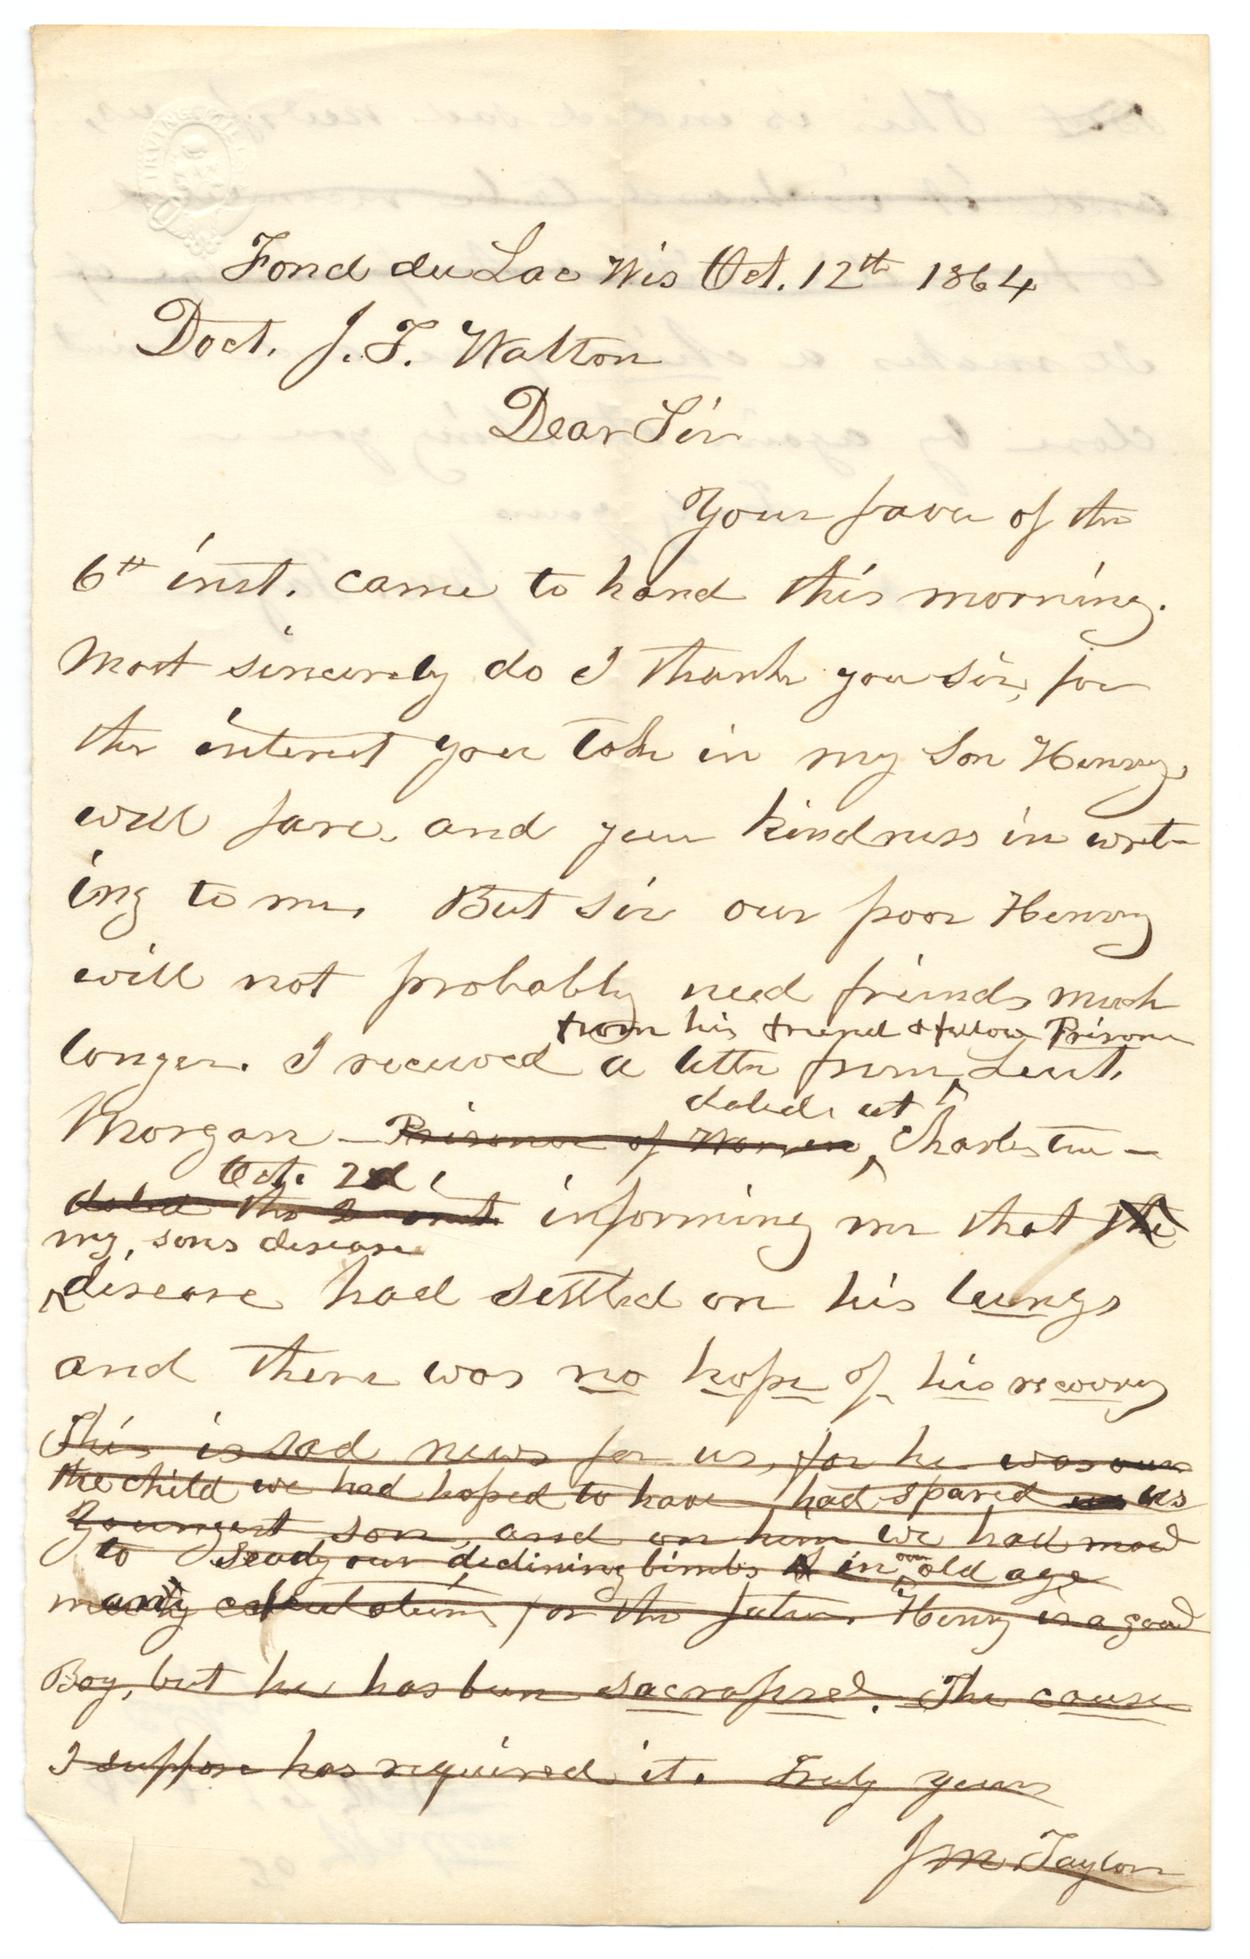 Fond du Lac Wis Oct. 12th 1864
Doct. J. F. Walton
Dear Sir
Your favor of the
6th inst. came to hand this morning.
Most sincerely do I thank you sir, for
the interest you took in my Son Henry,
will fare, and your kindness in writ-
ing to me. But sir our poor Henry
will not probably need friends much
from his friend & fellow Prisoner
longer. I received a letter from Lieut.
dated at
Morgan - Prisoner of War Charleston -
Oct. 2d
dated the 2 inst. informing me that the
my, sons disease
disease had settled on his lungs
and there was no hope of his recovery
This is sad news for us, for he was our
the child we had hoped to have had spared us
Youngest son, and on him we had made
to steady our declining limbs in our old age
many calculations for the future. Henry is a good
Boy, but he has been sacrafised. The cause
I suppose has required it. Truly yours
J M Taylor